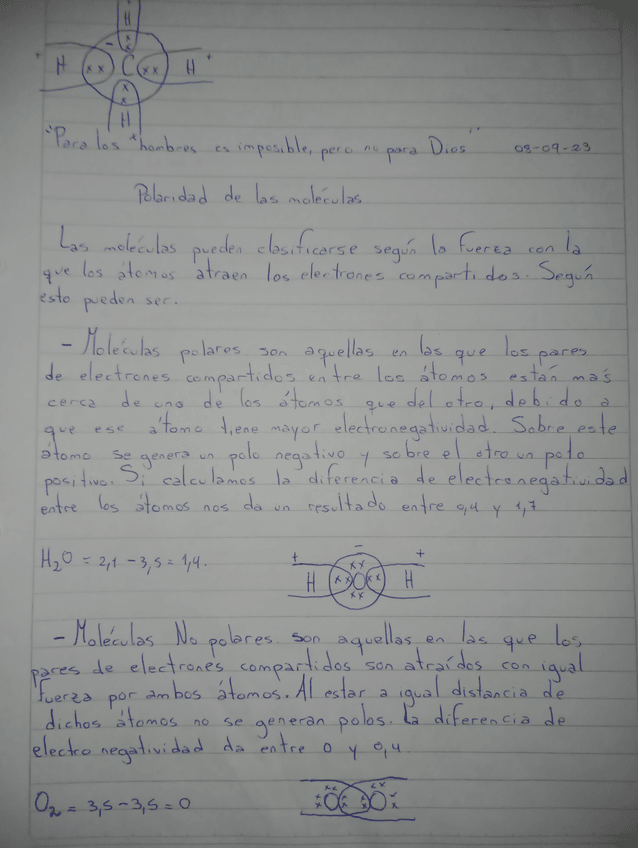 H
H C H
H
"Para los hombres es imposible, pero no para Dios" 03-09-23
Polaridad de las moléculas
Las moléculas pueden clasificarse según la fuerza con la
que los átomos atraen los electrones compartidos. Según
esto pueden ser.
- Moléculas polares son aquellas en las que los pares
de electrones compartidos entre los átomos están más
cerca de uno de los átomos que del otro, debido a
que ese átomo tiene mayor electronegatividad. Sobre este
átomo se genera un polo negativo y sobre el otro un polo
positivo. Si calculamos la diferencia de electronegatividad
entre los átomos nos da un resultado entre 0,4 y 1,7
H₂O = 2,1 - 3,5 = 1,4.
+ - +
H xx O xx H
- Moléculas No polares son aquellas en las que los
pares de electrones compartidos son atraídos con igual
fuerza por ambos átomos. Al estar a igual distancia de
dichos átomos no se generan polos. La diferencia de
electro negatividad da entre 0 y 0,4
O₂ = 3,5 - 3,5 = 0
O O